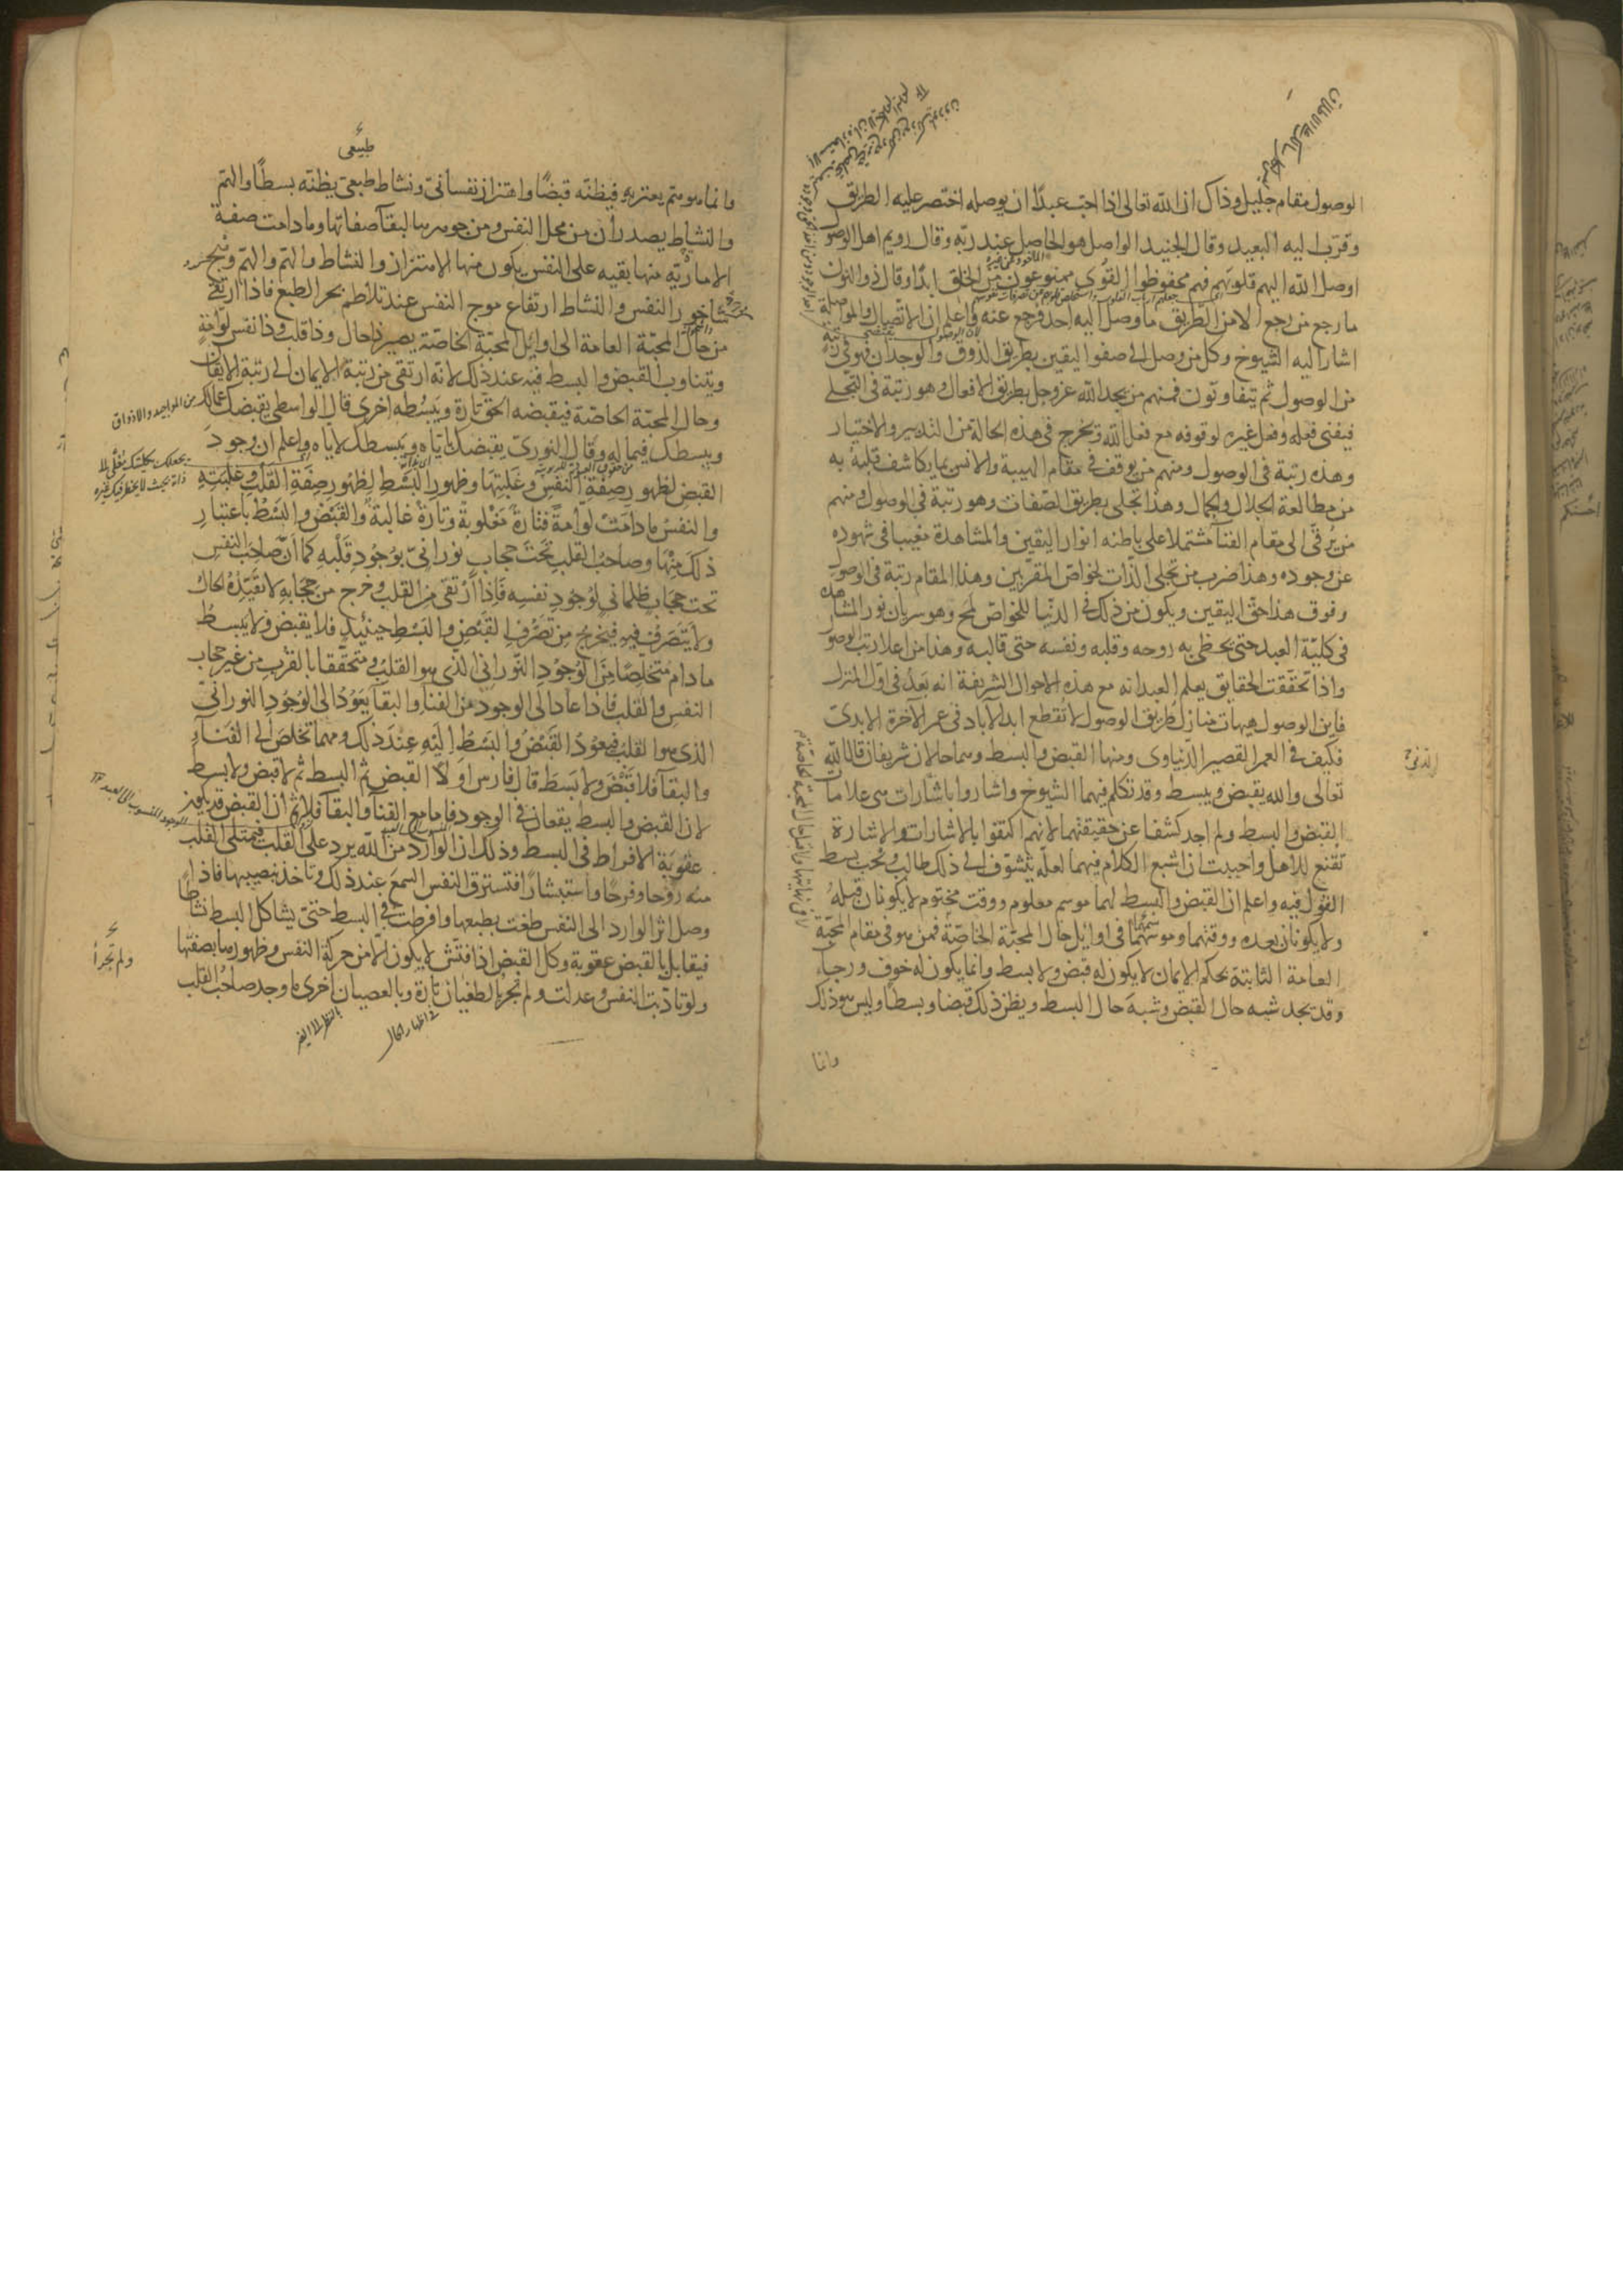 الوصول مقام جليل وذاك ان الله تعالى اذا احب عبدًا ان يوصله اختصر عليه الطريق
وقرب اليه البعيد وقال الجنيد الواصل هو الحاصل عند ربّه وقال رويم اهل الوصول
اوصل الله اليهم قلوبهم فهم محفوظوا القوى ممنوعون من الخلق ابدًا وقال ذو النون
ما رجع من رجع الا من الطريق ما وصل اليه احد فرجع عنه واعلم ان الاتصال والمواصلة
اشار اليه الشيوخ وكل من وصل الى صفو اليقين بطريق الذوق والوجدان فهو في رتبة
من الوصول ثم يتفاوتون فمنهم من يجد الله عز وجل بطريق الافعال وهو رتبة في التجلي
فيفنى فعله وفعل غيره لوقوفه مع فعل الله ويخرج في هذه الحالة من التدبير والاختيار
وهذه رتبة في الوصول ومنهم من يوقف في مقام الهيبة والانس بما يكاشف قلبه به
من مطالعة الجلال والجمال وهذا تجلى بطريق الصفات وهو رتبة في الوصول ومنهم
من يرقى الى مقام الفنا مشتملا على باطنه انوار اليقين والمشاهدة مغيبا في شهوده
عن وجوده وهذا ضرب من تجلى الذات لخواص المقربين وهذا المقام رتبة في الوصول
وفوق هذا حق اليقين ويكون من ذلك في الدنيا للخواص لمح وهو سريان نور المشاهدة
في كلية العبد حتى يحظى به روحه وقلبه ونفسه حتى قالبه وهذا من اعلا رتب الوصول
واذا تحققت الحقايق يعلم العبد انه مع هذه الاحوال الشريفة انه بعد في اول المنزل
فاين الوصول هيهات منازل طريق الوصول لا تقطع ابد الآباد في عمر الآخرة الابدى
فكيف في العمر القصير الدنياوى ومنها القبض والبسط وهما حالان شريفان قال الله
تعالى والله يقبض ويبسط وقد تكلم فيهما الشيوخ واشاروا باشارات هى علامات
القبض والبسط ولم اجد كشفا عن حقيقتهما لانهم اكتفوا بالاشارات والاشارة
تقنع للاهل واحببت ان اشبع الكلام فيهما لعله يتشوف الى ذلك طالب ويحب بسط
القول فيه واعلم ان القبض والبسط لهما موسم معلوم ووقت مختوم لا يكونان قبله
ولا يكونان بعده ووقتهما وموسمهما في اوايل حال المحبة الخاصة فمن هو في مقام المحبة
العامة الثابتة بحكم الايمان لا يكون له قبض ولا بسط وانما يكون له خوف ورجاء
وقد يجد شبه حال القبض وشبه حال البسط ويظن ذلك قبضا وبسطا وليس هو ذلك
وانما
طبيعى
وانما هو هم يعتريه فيظنه قبضًا واهتزاز نفسانى ونشاط طبعى يظنه بسطًا والهم
والنشاط يصدران من محل النفس ومن جوهرها لبقآ صفاتها وما دامت صفة
الامارية منها بقيه على النفس يكون منها الاهتزاز والنشاط والهم وهج
ساجور النفس والنشاط ارتفاع موج النفس عند تلاطم بحر الطبع فاذا ارتقى
من حال المحبة العامة الى اوائل المحبة الخاصة يصير ذا حال وذا قلب وذا نفس لوامة
ويتناوب القبض والبسط فيه عند ذلك لانه ارتقى من رتبة الايمان الى رتبة الايقان
وحال المحبة الخاصة فيقبضه الحق تارة ويبسطه اخرى قال الواسطى يقبضك عمالك
ويبسطك فيما له وقال النورى يقبضك باياه ويبسطك لاياه واعلم ان وجود
القبض لظهور صفة النفس وغلبتها وظهور البسط لظهور صفة القلب وغلبته
والنفس ما دامت لوامة فتارة مغلوبة وتارة غالبة والقبض والبسط باعتبار
ذلك منها وصاحب القلب تحت حجاب نورانى بوجود قلبه كما ان صاحب النفس
تحت حجاب ظلمانى لوجود نفسه فاذا ارتقى من القلب وخرج من حجابه لا تقيده الحال
ولا يتصرف فيه فيخرج من تصرف القبض والبسط حينئذ فلا يقبض ولا يبسط
ما دام متخلصًا من الوجود النورانى الذى هو القلب ومتحققا بالقرب من غير حجاب
النفس والقلب فاذا عاد الى الوجود من الفنا والبقا يعود الى الوجود النورانى
الذى هو القلب فيعود القبض والبسط اليه عند ذلك ومهما تخلص الى الفنآ
والبقآ فلا قبض ولا بسط قال فارس اولا القبض ثم البسط ثم لا قبض ولا بسط
لان القبض والبسط يقعان في الوجود فاما مع الفنآ والبقآ فلا ثم ان القبض قد يكون
عقوبة الافراط في البسط وذلك ان الوارد من الله يرد على القلب فيمتلى القلب
منه روحا وفرحًا واستبشارًا فتسترق النفس السمع عند ذلك وتاخذ نصيبها فاذا
وصل اثر الوارد الى النفس طغت بطبعها وافرطت في البسط حتى يشاكل البسط نشاطًا
فيقابل بالقبض عقوبة وكل القبض اذا فتش لا يكون الا من حركة النفس وظهورها بصفتها
ولو تادبت النفس وعدلت ولم تجر بالطغيان تارة وبالعصيان اخرى ما وجد صاحب القلب